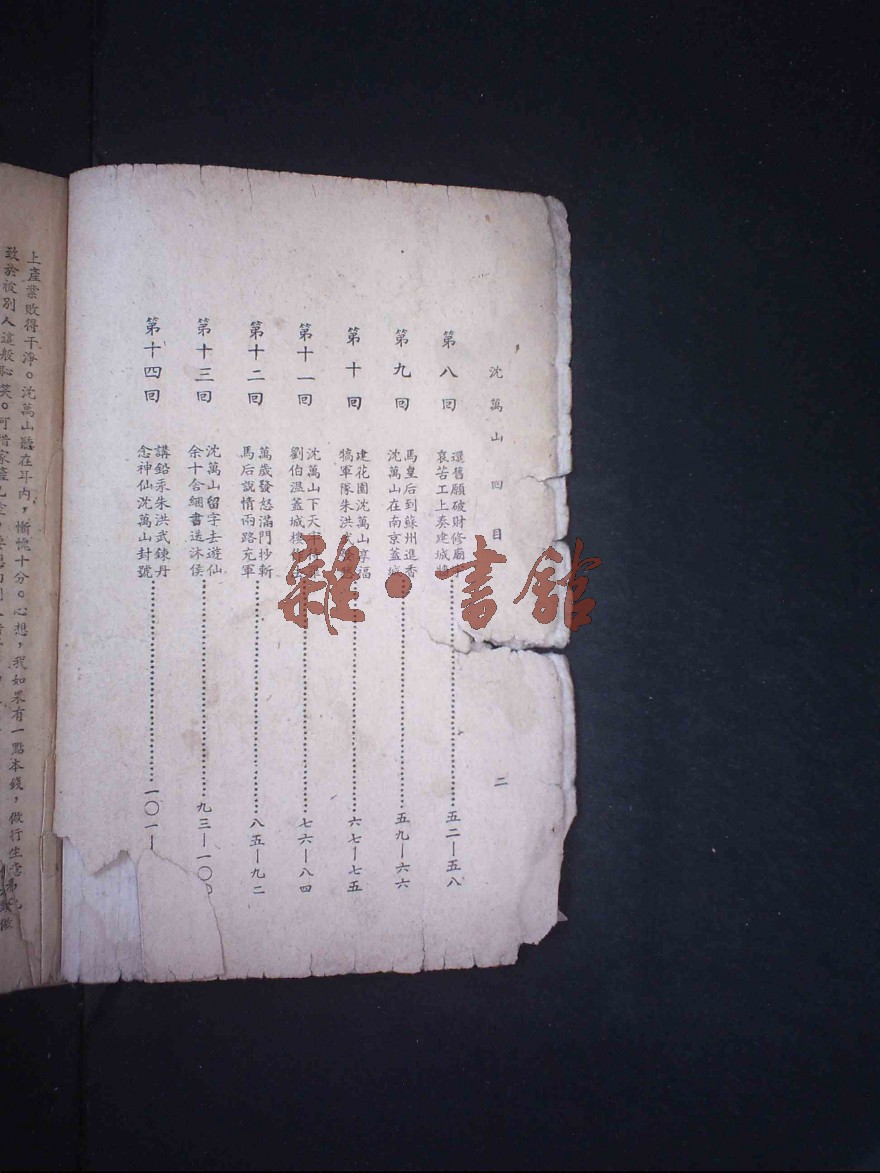 沈萬山 回目 二
第八回
還舊願破財修廟宇
哀苦工上奏建城牆
五二—五八
第九回
馬皇后到蘇州進香
沈萬山在南京蓋城
五九—六六
第十回
建花園沈萬山享福
犒軍隊朱洪武
六七—七五
第十一回
沈萬山下天牢
劉伯溫蓋城樓
七六—八四
第十二回
萬歲發怒滿門抄斬
馬后説情兩路充軍
八五—九二
第十三回
沈萬山留字去遊仙
余十舍綑書送沐侯
九三—一〇
第十四回
講鉛汞朱洪武鍊丹
念神仙沈萬山封號
一〇一—
上產業敗得干淨。沈萬山聽在斗內,慚愧十分。心想,我如果有一點本錢,做行生意
致於被別人這般恥笑。可惜家產
雜·書館